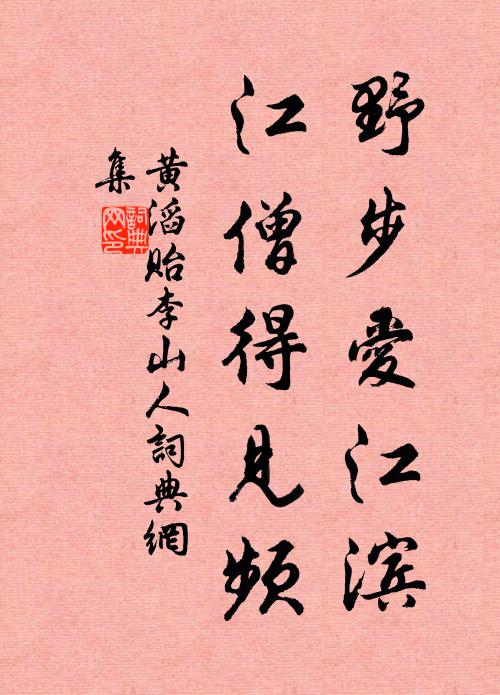 野步爱江滨
江僧得见频
黄滔贻李山人詞典網
集
詞典
网印